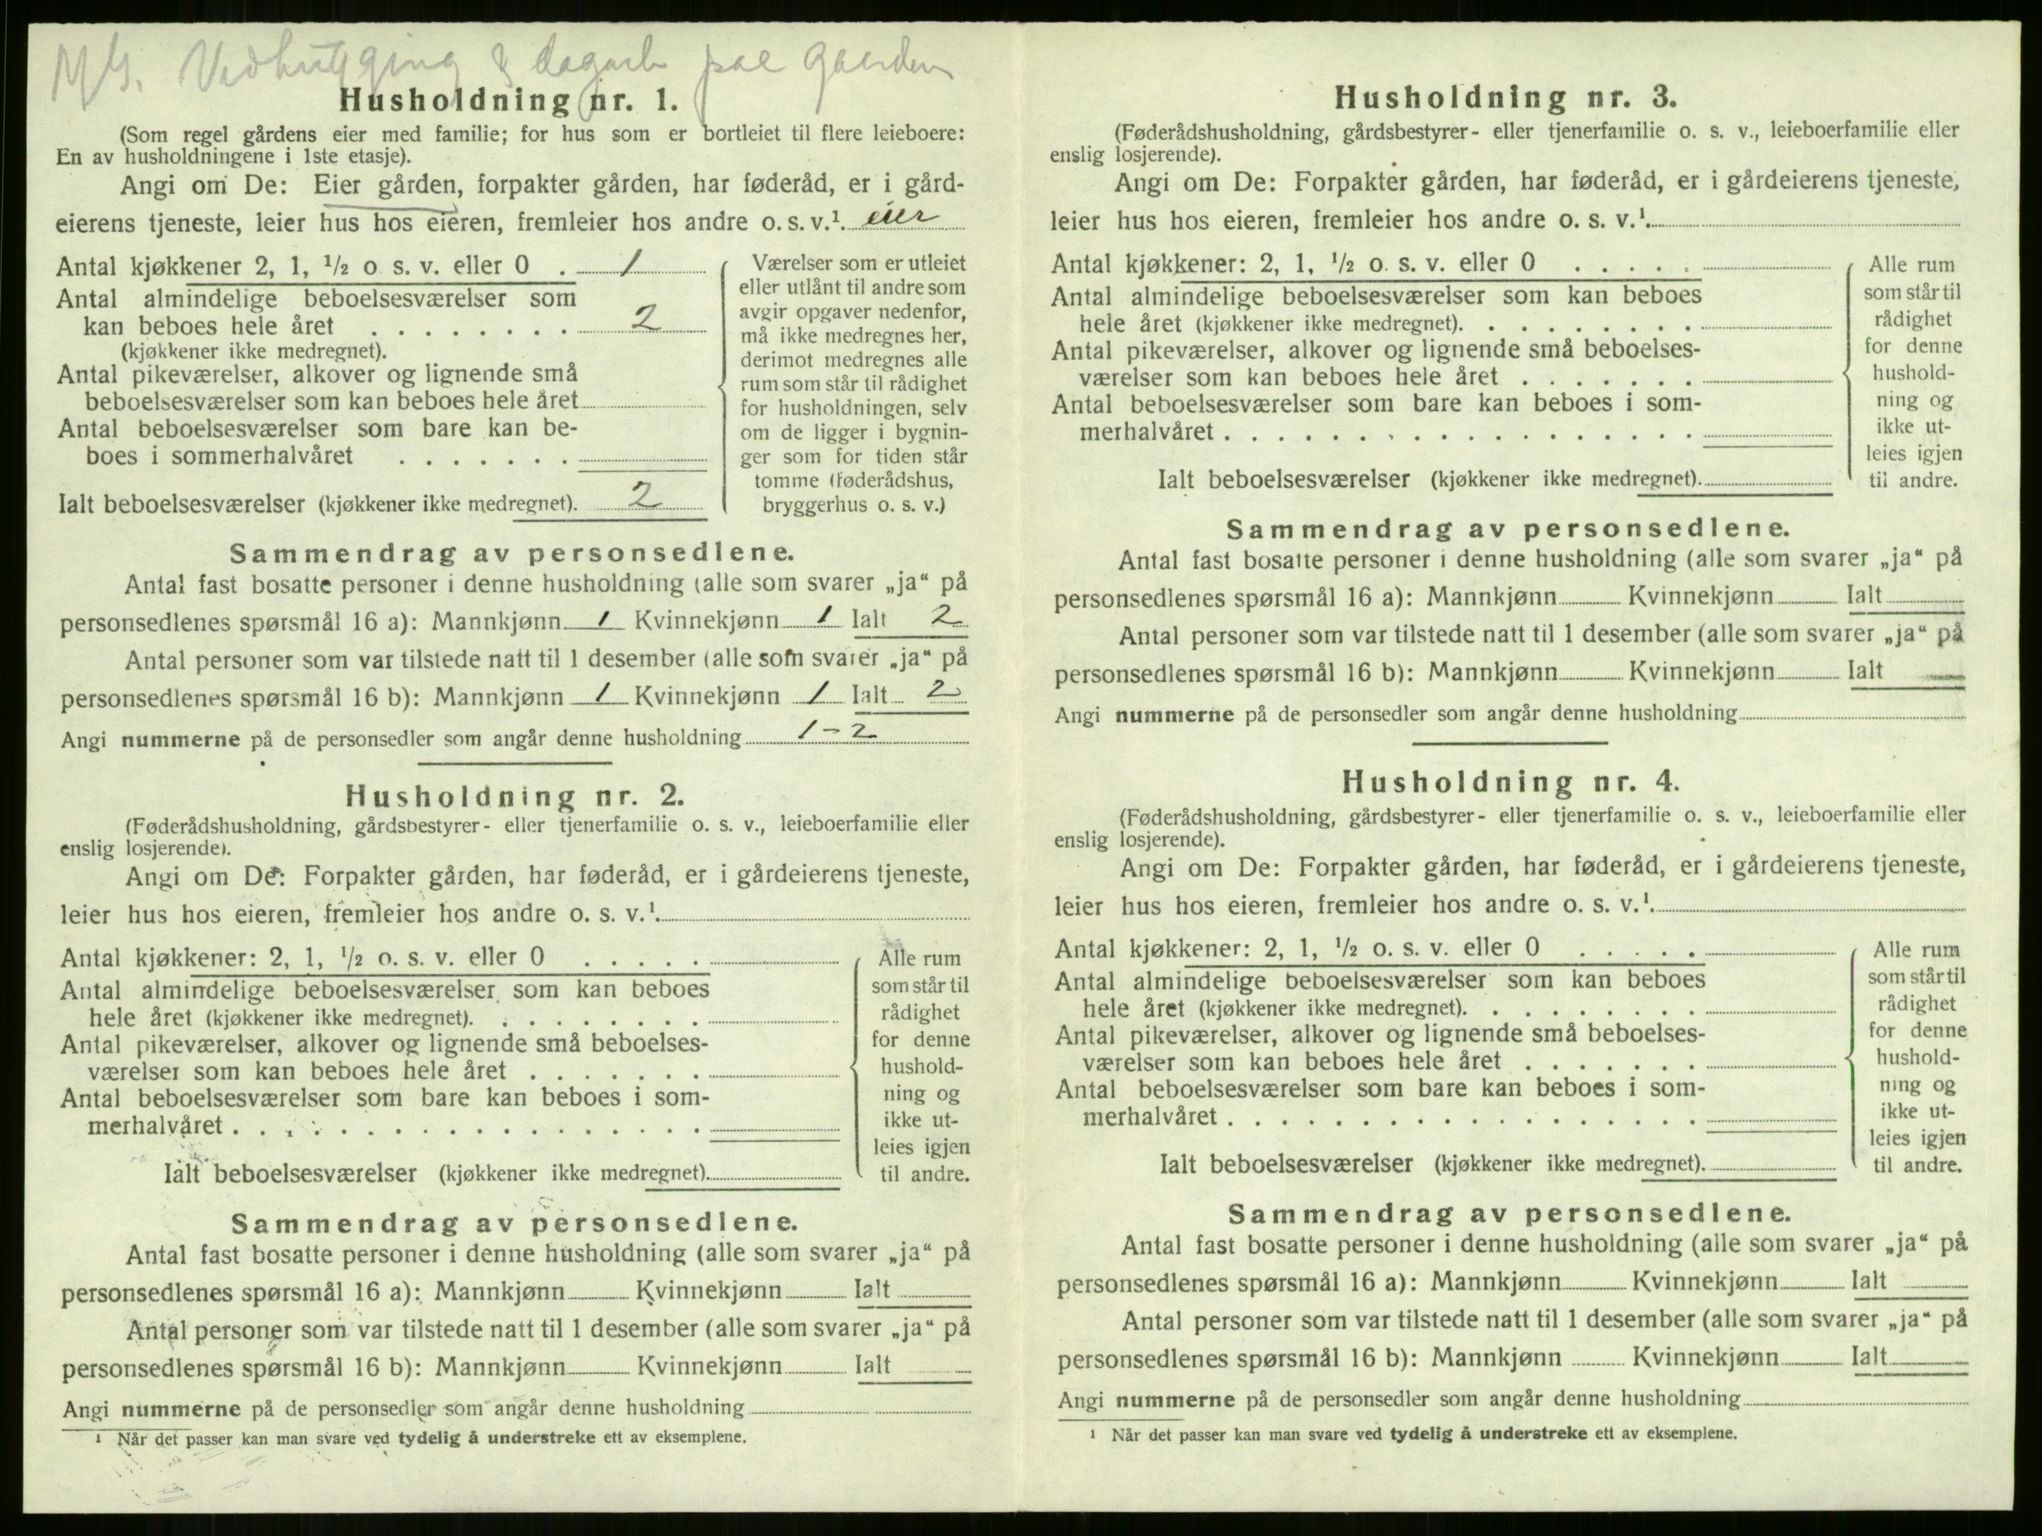 Vedhugging & dagarb paa Gaarden
Husholdning nr. 1.
(Som regel gårdens eier med familie; for hus som er bortleiet til flere leieboere:
En av husholdningene i 1ste etasje).
Angi om De: Eier gården, forpakter gården, har føderåd, er i gård-
eierens tjeneste, leier hus hos eieren, fremleier hos andre o. s. v.¹. eier
Antal kjøkkener 2, 1, ½ o s. v. eller 0 . 1
Antal almindelige beboelsesværelser som
kan beboes hele året . . . . . . . . 2
(kjøkkener ikke medregnet).
Antal pikeværelser, alkover og lignende små
beboelsesværelser som kan beboes hele året
Antal beboelsesværelser som bare kan be-
boes i sommerhalvåret . . . . . . .
Ialt beboelsesværelser (kjøkkener ikke medregnet). 2
Værelser som er utleiet
eller utlånt til andre som
avgir opgaver nedenfor,
må ikke medregnes her,
derimot medregnes alle
rum som står til rådighet
for husholdningen, selv
om de ligger i bygnin-
ger som for tiden står
tomme (føderådshus,
bryggerhus o. s. v.)
Sammendrag av personsedlene.
Antal fast bosatte personer i denne husholdning (alle som svarer „ja“ på
personsedlenes spørsmål 16 a): Mannkjønn 1 Kvinnekjønn 1 Ialt 2
Antal personer som var tilstede natt til 1 desember (alle som svarer „ja“ på
personsedlenes spørsmål 16 b): Mannkjønn 1 Kvinnekjønn 1 Ialt 2
Angi nummerne på de personsedler som angår denne husholdning 1-2
Husholdning nr. 2.
(Føderådshusholdning, gårdsbestyrer- eller tjenerfamilie o. s. v., leieboerfamilie eller
enslig losjerende).
Angi om De: Forpakter gården, har føderåd, er i gårdeierens tjeneste,
leier hus hos eieren, fremleier hos andre o. s. v.¹.
Antal kjøkkener: 2, 1, ½ o. s. v. eller 0 . . . . .
Antal almindelige beboelsesværelser som kan beboes
hele året (kjøkkener ikke medregnet). . . . . . . . .
Antal pikeværelser, alkover og lignende små beboelses-
værelser som kan beboes hele året . . . . . . .
Antal beboelsesværelser som bare kan beboes i som-
merhalvåret . . . . . . . . . . . . . . . . . .
Ialt beboelsesværelser (kjøkkener ikke medregnet).
Alle rum
som står til
rådighet
for denne
hushold-
ning og
ikke ut-
leies igjen
til andre.
Sammendrag av personsedlene.
Antal fast bosatte personer i denne husholdning (alle som svarer „ja“ på
personsedlenes spørsmål 16 a): Mannkjønn Kvinnekjønn Ialt
Antal personer som var tilstede natt til 1 desember (alle som svarer „ja“ på
personsedlenes spørsmål 16 b): Mannkjønn Kvinnekjønn Ialt
Angi nummerne på de personsedler som angår denne husholdning
¹ Når det passer kan man svare ved tydelig å understreke ett av eksemplene.
Husholdning nr. 3.
(Føderådshusholdning, gårdsbestyrer- eller tjenerfamilie o. s. v., leieboerfamilie eller
enslig losjerende).
Angi om De: Forpakter gården, har føderåd, er i gårdeierens tjeneste,
leier hus hos eieren, fremleier hos andre o. s. v.¹.
Antal kjøkkener: 2, 1, ½ o. s. v. eller 0 . . . . .
Antal almindelige beboelsesværelser som kan beboes
hele året (kjøkkener ikke medregnet). . . . . . . . .
Antal pikeværelser, alkover og lignende små beboelses-
værelser som kan beboes hele året . . . . . . .
Antal beboelsesværelser som bare kan beboes i som-
merhalvåret . . . . . . . . . . . . . . . . . .
Ialt beboelsesværelser (kjøkkener ikke medregnet).
Alle rum
som står til
rådighet
for denne
hushold-
ning og
ikke ut-
leies igjen
til andre.
Sammendrag av personsedlene.
Antal fast bosatte personer i denne husholdning (alle som svarer „ja“ på
personsedlenes spørsmål 16 a): Mannkjønn Kvinnekjønn Ialt
Antal personer som var tilstede natt til 1 desember (alle som svarer „ja“ på
personsedlenes spørsmål 16 b): Mannkjønn Kvinnekjønn Ialt
Angi nummerne på de personsedler som angår denne husholdning
Husholdning nr. 4.
(Føderådshusholdning, gårdsbestyrer- eller tjenerfamilie o. s. v., leieboerfamilie eller
enslig losjerende).
Angi om De: Forpakter gården, har føderåd, er i gårdeierens tjeneste,
leier hus hos eieren, fremleier hos andre o. s. v.¹.
Antal kjøkkener: 2, 1, ½ o. s. v. eller 0 . . . . .
Antal almindelige beboelsesværelser som kan beboes
hele året (kjøkkener ikke medregnet). . . . . . . . .
Antal pikeværelser, alkover og lignende små beboelses-
værelser som kan beboes hele året . . . . . . .
Antal beboelsesværelser som bare kan beboes i som-
merhalvåret . . . . . . . . . . . . . . . . . .
Ialt beboelsesværelser (kjøkkener ikke medregnet).
Alle rum
som står til
rådighet
for denne
hushold-
ning og
ikke ut-
leies igjen
til andre.
Sammendrag av personsedlene.
Antal fast bosatte personer i denne husholdning (alle som svarer „ja“ på
personsedlenes spørsmål 16 a): Mannkjønn Kvinnekjønn Ialt
Antal personer som var tilstede natt til 1 desember (alle som svarer „ja“ på
personsedlenes spørsmål 16 b): Mannkjønn Kvinnekjønn Ialt
Angi nummerne på de personsedler som angår denne husholdning
¹ Når det passer kan man svare ved tydelig å understreke ett av eksemplene.